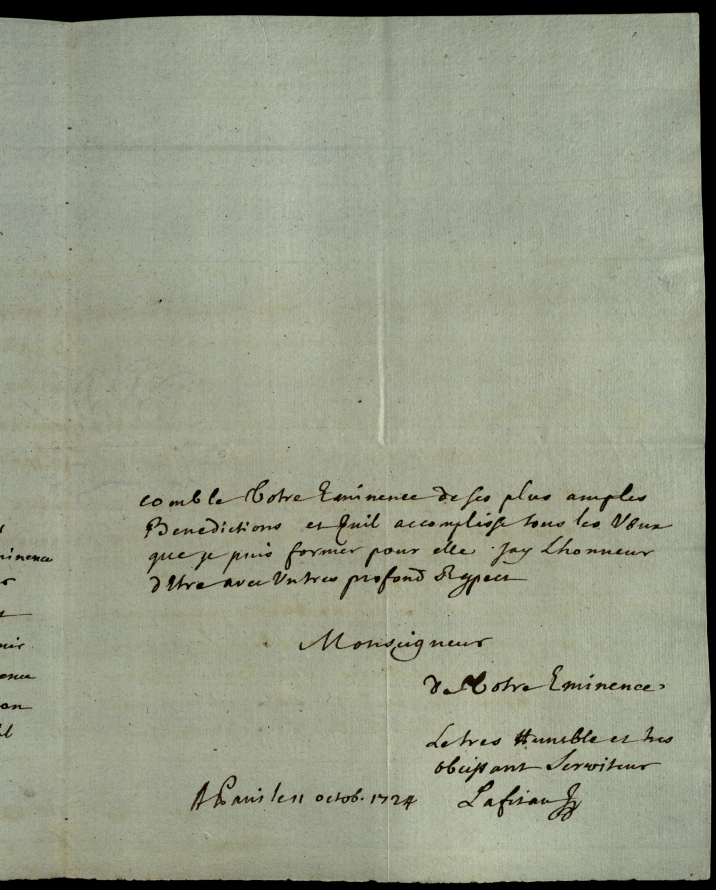 comble Votre Eminence de ses plus amples
Benedictions et Quil accomplisse tous les Vœux
que je puis former pour elle. jay Lhonneur
d'Etre avec Un tres profond Respect
Monseigneur
de Votre Eminence
Le tres Humble et tres
obeissant Serviteur
A Paris le 11 octob. 1724 Lafitau